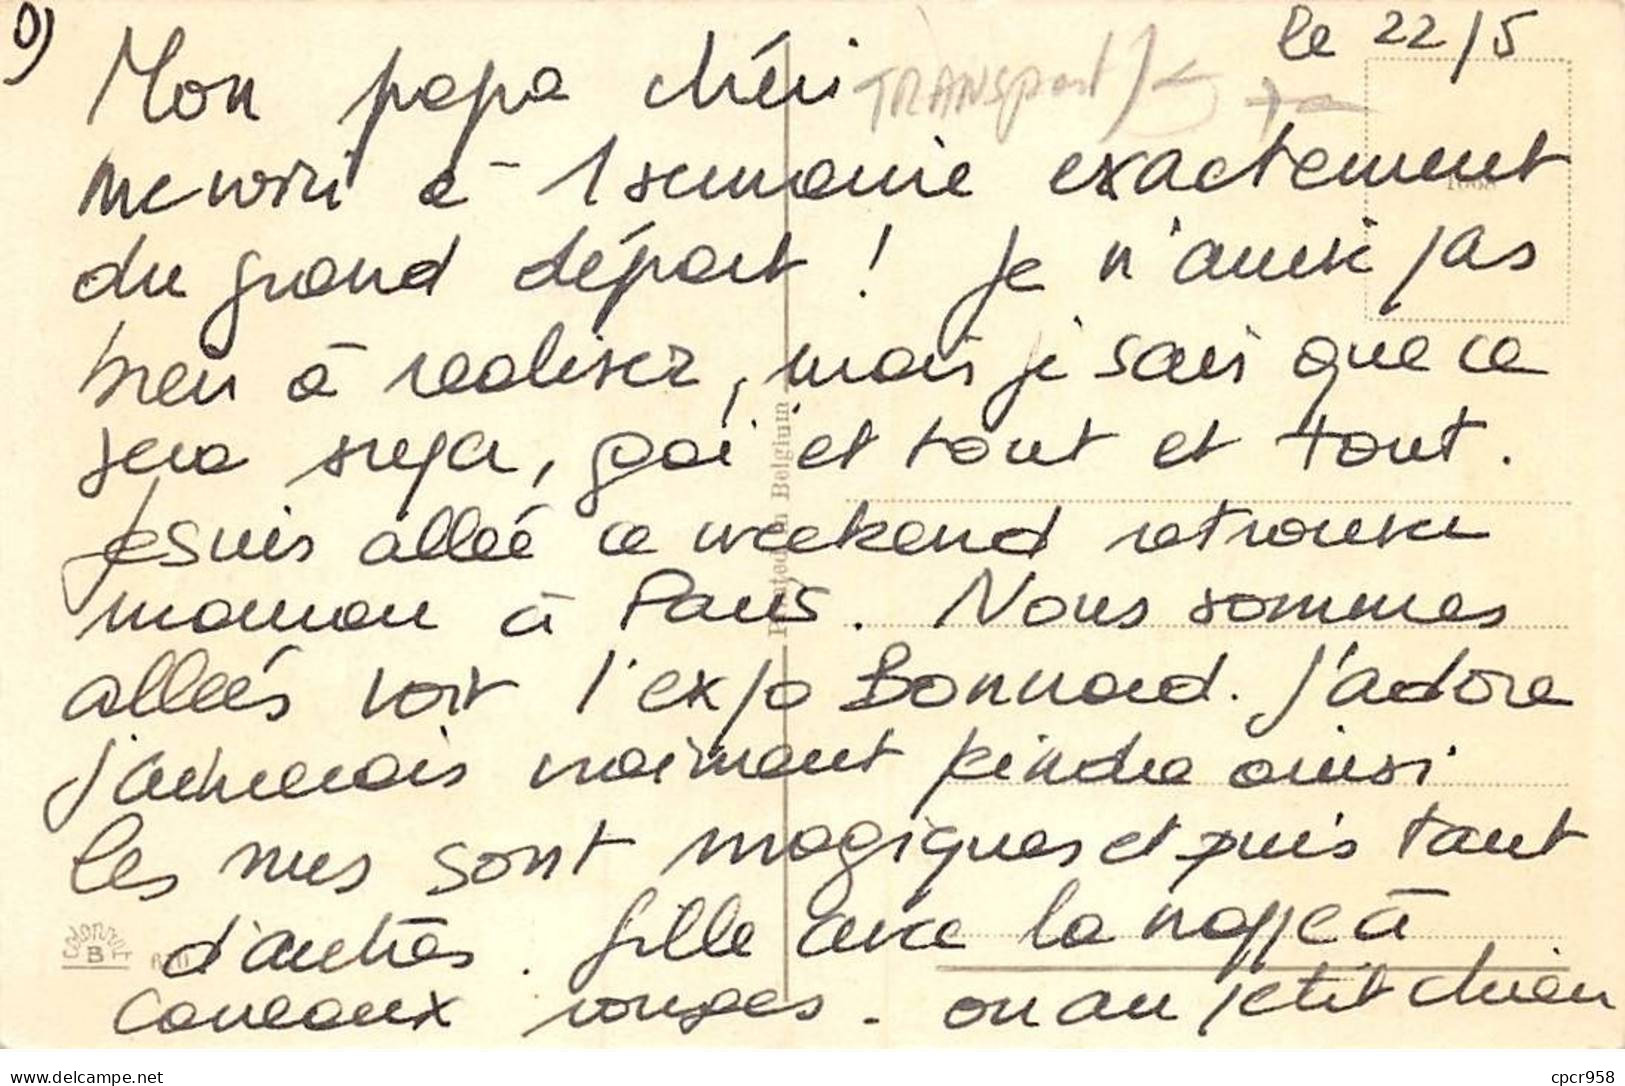 le 22/5
Mon papa chéri
TRANSport
me voici à 1 semaine exactement
du grand départ ! Je n'arrive pas
bien à realiser, mais je sais que ce
sera super, gai et tout et tout.
Je suis allée ce weekend retrouver
maman à Paris. Nous sommes
allées voir l'expo Bonnard. J'adore
j'aimerais vraiment peindre ainsi
les nus sont magiques et puis tant
d'autres. fille avec la nappe à
carreaux rouges. ou au petit chien
Printed in Belgium
colorprint
B
cpcr958